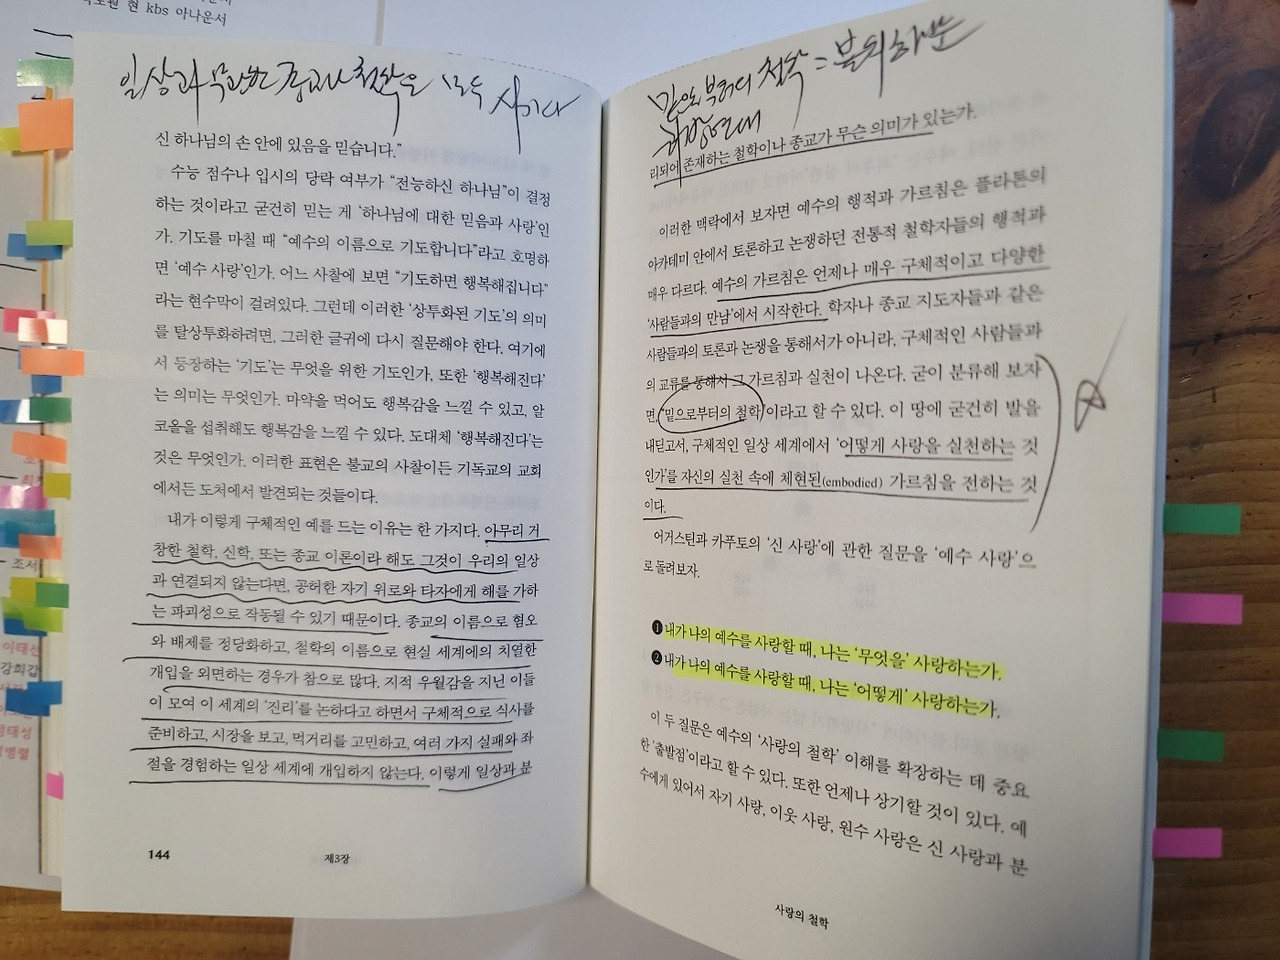 현 kbs 아나운서
일상과 무관한 종교나 철학은 모두 사기다
신 하나님의 손 안에 있음을 믿습니다.”
수능 점수나 입시의 당락 여부가 “전능하신 하나님”이 결정
하는 것이라고 굳건히 믿는 게 ‘하나님에 대한 믿음과 사랑’인
가. 기도를 마칠 때 “예수의 이름으로 기도합니다”라고 호명하
면 ‘예수 사랑’인가. 어느 사찰에 보면 “기도하면 행복해집니다”
라는 현수막이 걸려있다. 그런데 이러한 ‘상투화된 기도’의 의미
를 탈상투화하려면, 그러한 글귀에 다시 질문해야 한다. 여기에
서 등장하는 ‘기도’는 무엇을 위한 기도인가, 또한 ‘행복해진다’
는 의미는 무엇인가. 마약을 먹어도 행복감을 느낄 수 있고, 알
코올을 섭취해도 행복감을 느낄 수 있다. 도대체 ‘행복해진다’는
것은 무엇인가. 이러한 표현은 불교의 사찰이든 기독교의 교회
에서든 도처에서 발견되는 것들이다.
내가 이렇게 구체적인 예를 드는 이유는 한 가지다. 아무리 거
창한 철학, 신학, 또는 종교 이론이라 해도 그것이 우리의 일상
과 연결되지 않는다면, 공허한 자기 위로와 타자에게 해를 가하
는 파괴성으로 작동될 수 있기 때문이다. 종교의 이름으로 혐오
와 배제를 정당화하고, 철학의 이름으로 현실 세계에의 치열한
개입을 외면하는 경우가 참으로 많다. 지적 우월감을 지닌 이들
이 모여 이 세계의 ‘진리’를 논하다고 하면서 구체적으로 식사를
준비하고, 시장을 보고, 먹거리를 고민하고, 여러 가지 실패와 좌
절을 경험하는 일상 세계에 개입하지 않는다. 이렇게 일상과 분
144
제3장
밑으로부터의 철학 =
리되어 존재하는 철학이나 종교가 무슨 의미가 있는가.
이러한 맥락에서 보자면 예수의 행적과 가르침은 플라톤의
아카데미 안에서 토론하고 논쟁하던 전통적 철학자들의 행적과
매우 다르다. 예수의 가르침은 언제나 매우 구체적이고 다양한
‘사람들과의 만남’에서 시작한다. 학자나 종교 지도자들과 같은
사람들과의 토론과 논쟁을 통해서가 아니라, 구체적인 사람들과
의 교류를 통해서 그 가르침과 실천이 나온다. 굳이 분류해 보자
면, ‘밑으로부터의 철학’이라고 할 수 있다. 이 땅에 굳건히 발을
내딛고서, 구체적인 일상 세계에서 ‘어떻게 사랑을 실천하는 것
인가’를 자신의 실천 속에 체현된(embodied) 가르침을 전하는 것
이다.
어거스틴과 카푸토의 ‘신 사랑’에 관한 질문을 ‘예수 사랑’으
로 돌려보자.
❶ 내가 나의 예수를 사랑할 때, 나는 ‘무엇을’ 사랑하는가.
❷ 내가 나의 예수를 사랑할 때, 나는 ‘어떻게’ 사랑하는가.
이 두 질문은 예수의 ‘사랑의 철학’ 이해를 확장하는 데 중요
한 ‘출발점’이라고 할 수 있다. 또한 언제나 상기할 것이 있다. 예
수에게 있어서 자기 사랑, 이웃 사랑, 원수 사랑은 신 사랑과 분
사랑의 철학